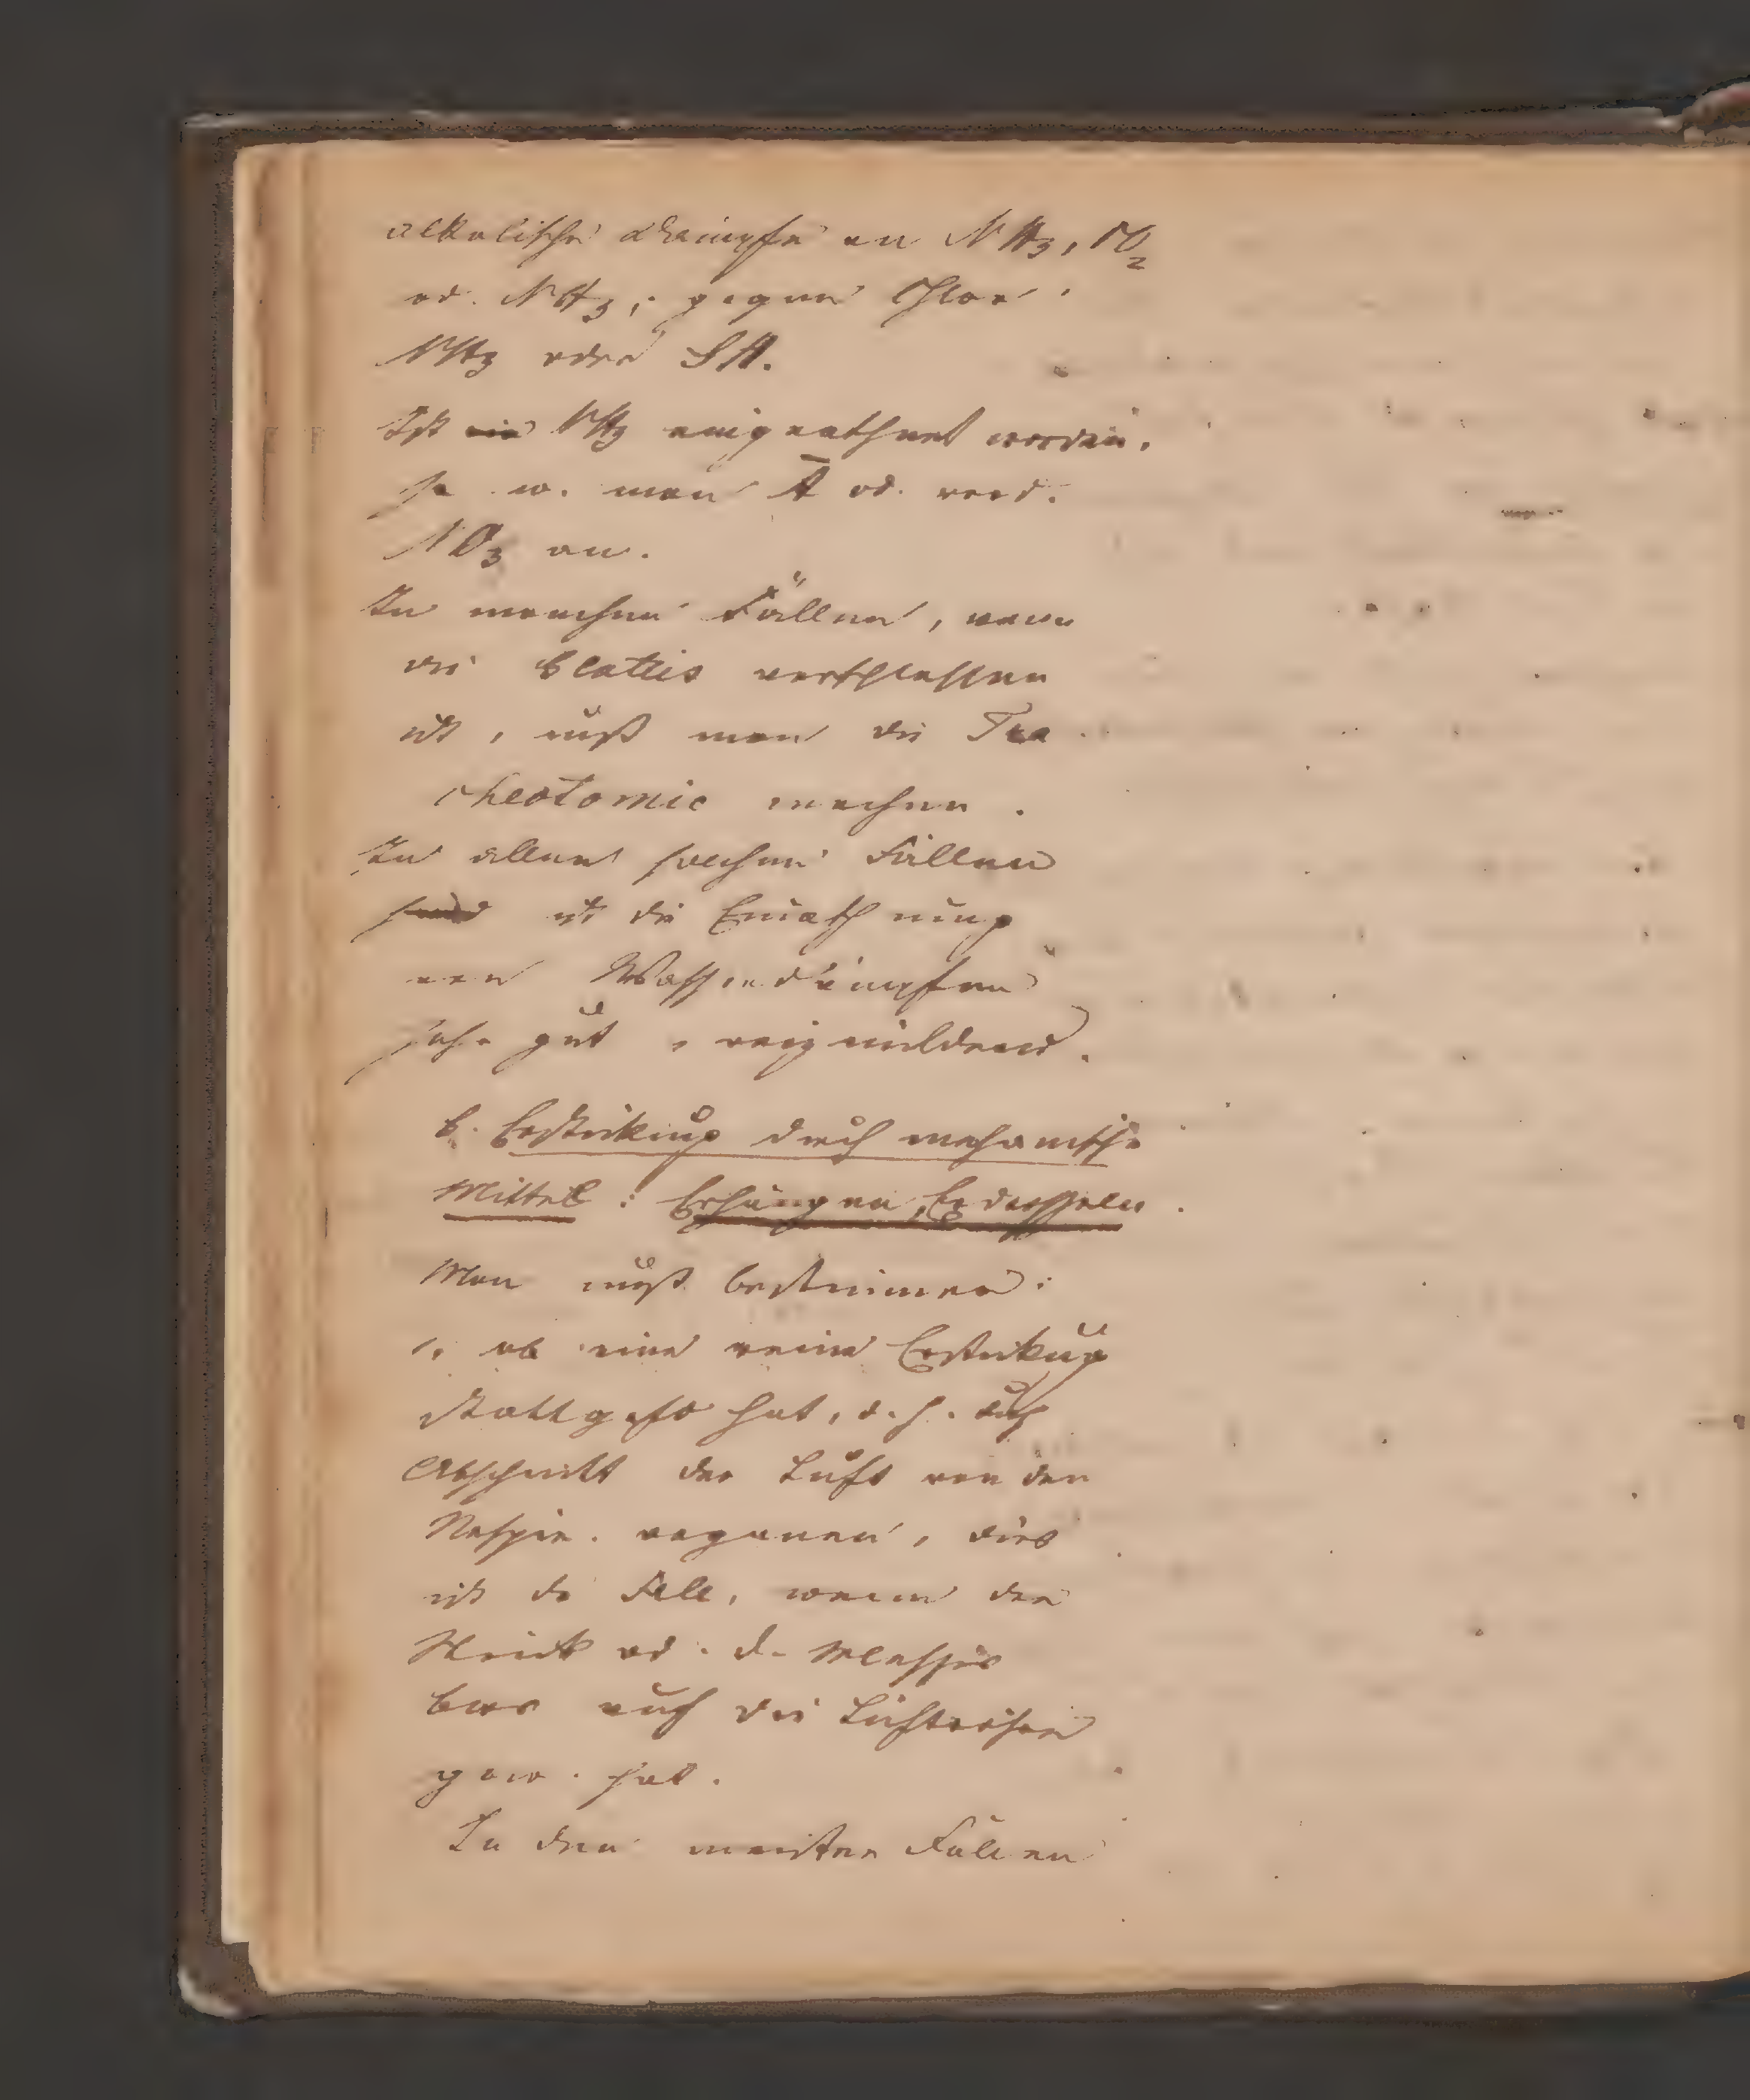 alkalische Dämpfe an NH3, CO2
od. NH3; gegen Chlor
NH3 oder SH.
Ist ein NH3 eingeathmet worden,
so w. man Ā od. verd.
NO3 an.
In manchen Fällen, wenn
die Glottis verschlossen
ist, muß man die Tra
cheotomie machen.
In allen solchen Fällen
sind ist die Einathmung
von Wasserdämpfen
sehr gut, reizmildernd.
b. Erstickung durch mechanische
Mittel: Erhängen, Erdrosseln.
Man muß bestimmen:
1, ob eine reine Erstickung
stattgef. hat, d. h. durch
Abschnitt der Luft von den
Respir. organen, dies
ist der Fall, wenn der
Strick od. d.
blos auf die Luftröhre
gew. hat.
In den meisten Fällen